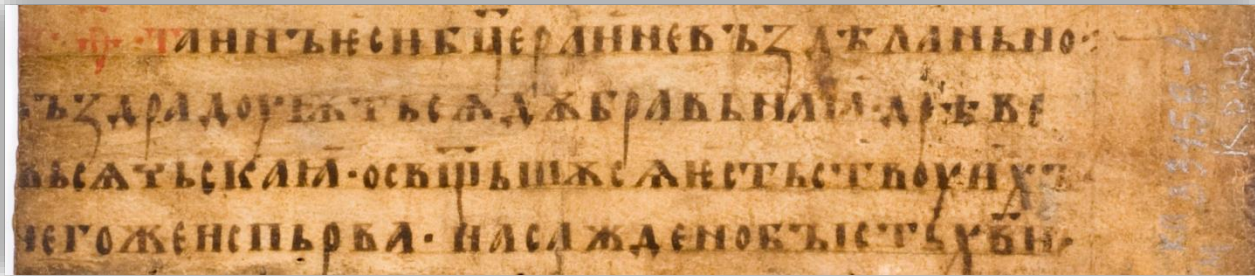 ·Таинъѥсибц҃ераиневъздѣланьно:
въздрадоуѭтьсѧдѫбравьнаꙗ·дрѣве
вьсѧтьскаꙗ·осв҃щьшѫсѧѥстьствоу·н
негожеиспьрва·насажденобъістьхв҃и·